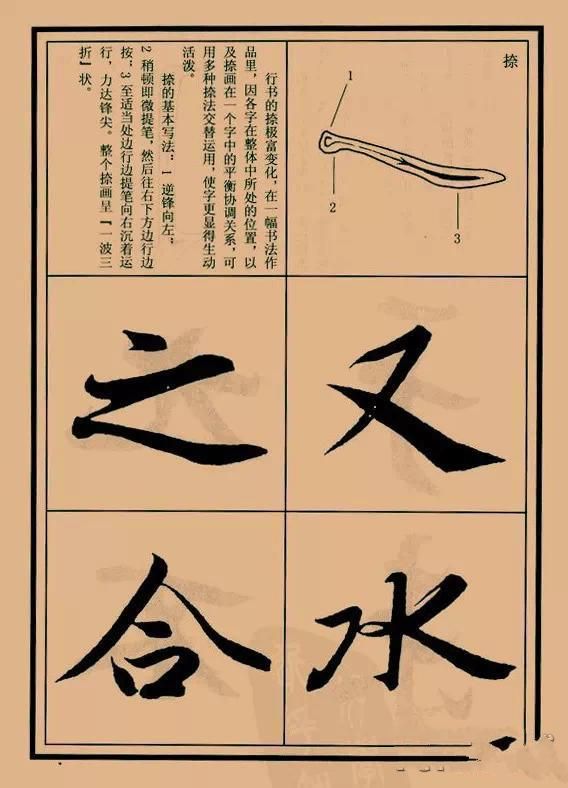 捺
1
2
3
行书的捺极富变化，在一幅书法作
品里，因各字在整体中所处的位置，以
及捺画在一个字中的平衡协调关系，可
用多种捺法交替运用，使字更显得生动
活泼。
捺的基本写法：1 逆锋向左；
2 稍顿即微提笔，然后往右下方边行边
按；3 至适当处边行边提笔向右沉着运
行，力达锋尖。整个捺画呈『一波三
折』状。
又
之
水
合